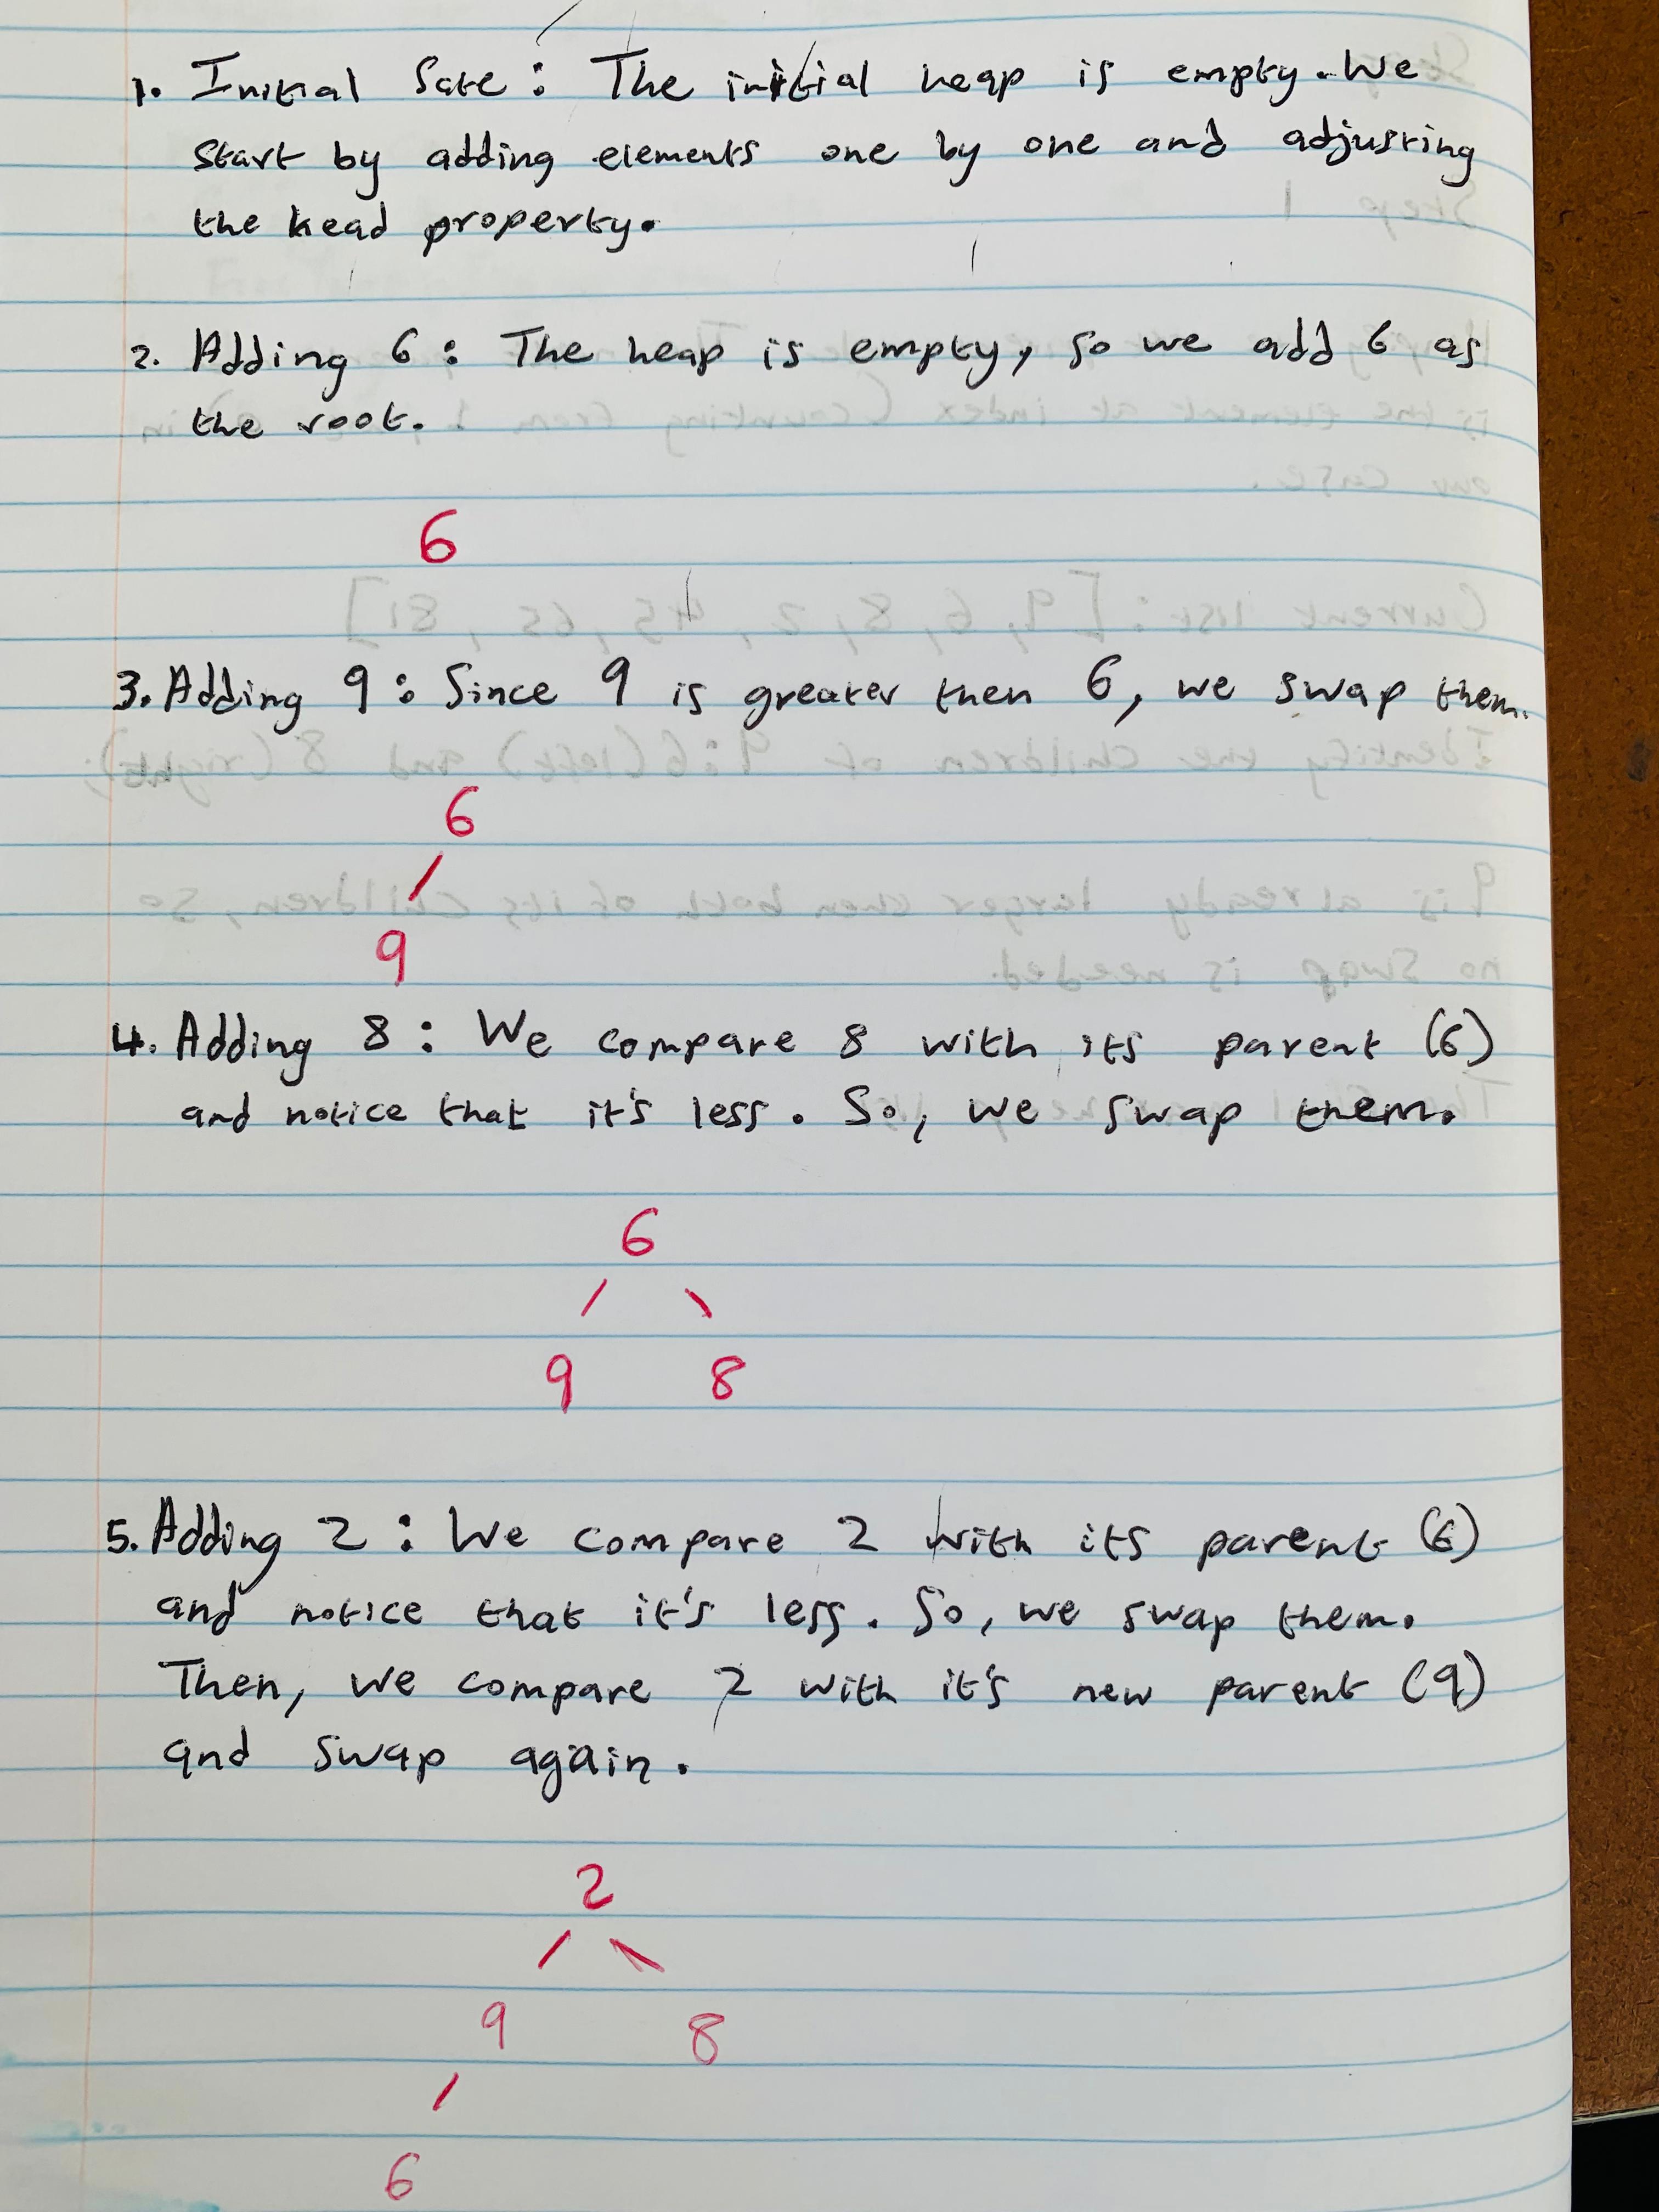 1. Initial Sate : The initial heap is empty. We
start by adding elements one by one and adjusting
the head property.
2. Adding 6 : The heap is empty, so we add 6 as
the root.
6
3. Adding 9 : Since 9 is greater then 6, we swap them.
6
9
4. Adding 8 : We compare 8 with its parent (6)
and notice that it's less. So, we swap them.
6
9 8
5. Adding 2 : We compare 2 with its parent (6)
and notice that it's less. So, we swap them.
Then, we compare 2 with it's new parent (9)
and swap again.
2
9 8
6